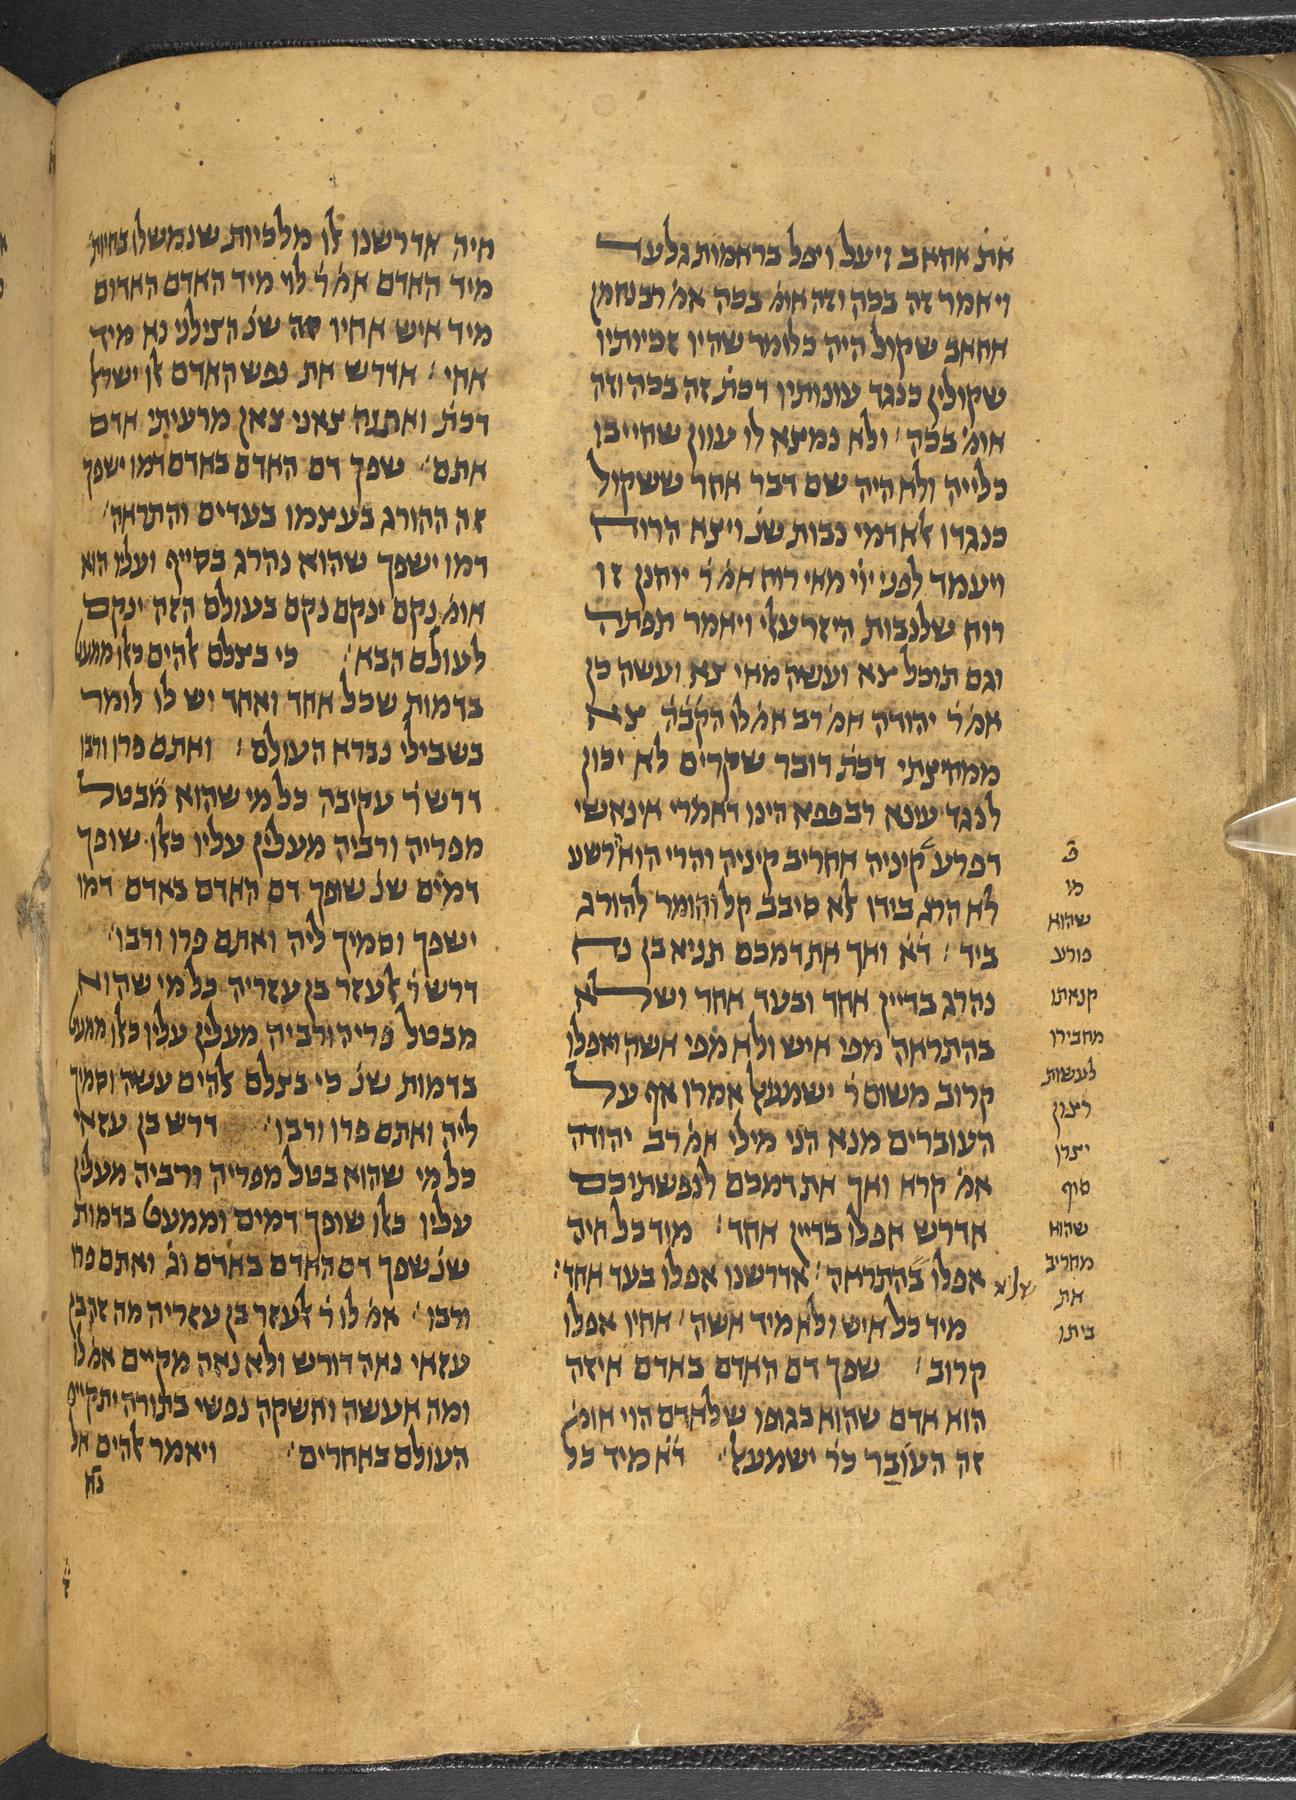 את אחאב ויעל ויפל ברמות גלעד
ויאמר זה בכה וזה אומ' בכה אמ' רב נחמן
אחאב שקול היה כלומר שהיו זכיותיו
שקולין כנגד עונותיו דכת' זה בכה וזה
אומ' בכה' ולא נמצא לו עוון שחייבו
כלייה ולא היה שם דבר אחר ששקול
כנגדו אלא דמי נבות שנ' ויצא הרוח
ויעמד לפני ייי מאי רוח אמ' ר' יוחנן זו
רוח שלנבות היזרעאלי ויאמר תפתה
וגם תוכל צא ועשה מאי צא ועשה כן
אמ' ר' יהודה אמ' רב אמ' לו הק'ב'ה' צא
ממחיצתי דכת' דובר שקרים לא יכון
לנגד עיני א' רב פפא היינו דאמרי אינאשי
דפרע קיניה אחריב קיניה והרי הוא רשע
לא הרג בידו אלא סיבב קל וחומר להורג
ביד' ד'א' ואך את דמכם תניא בן נח
נהרג בדיין אחד ובעד אחד ושלא
בהתראה מפי איש ולא מפי אשה ואפלו
קרוב משום ר' ישמעאל אמרו אף על
העוברים מנא הני מילי אמ' רב יהודה
אמ' קרא ואך את דמכם לנפשתיכם
אדרש אפלו בדיין אחד' מיד כל חיה
אפלו בהתראה' אדרשנו אפלו בעד אחד:
מיד כל איש ולא מיד אשה' אחיו אפלו
קרוב' שפך דם האדם באדם איזה
הוא אדם שהוא בגופו שלאדם הוי אומ'
זה העובר כר' ישמעאל' ד'א' מיד כל
פ'
מו
שהוא
פורע
קנאתו
מחבירו
לעשות
רצון
יצרו
סוף
שהוא
מחריב
את
ביתו
שלא
חיה אדרשנו אלו מלכיות שנמשלו בחיות'
מיד האדם אמ' ר' לוי מיד האדם האדום
מיד איש אחיו שנ' הצילני נא מיד
אחי' אדרש את נפש האדם אלו ישראל
דכת' ואתנה צאני צאן מרעיתי אדם
אתם' שפך דם האדם באדם דמו ישפך
זה ההורג בעצמו בעדים והתראה'
דמו ישפך שהוא נהרג בסייף ועליו הוא
אומ' נקם ינקם נקם בעולם הזה ינקם
לעולם הבא' כי בצלם אלהים כאלו ממעט
בדמות שכל אחד ואחד יש לו לומר
בשבילי נברא העולם' ואתם פרו ורבו
דרש ר' עקיבה כל מי שהוא מבטל
מפריה ורביה מעלין עליו כאלו שופך
דמים שנ' שופך דם האדם באדם דמו
ישפך וסמיך ליה ואתם פרו ורבו'
דרש ר' אלעזר בן עזריה כל מי שהוא
מבטל פריה ורביה מעלין עליו כאלו ממעט
בדמות שנ' כי בצלם אלהים עשה וסמיך
ליה ואתם פרו ורבו' דרש בן עזאי
כל מי שהוא בטל מפריה ורביה מעלין
עליו כאלו שופך דמים וממעט בדמות
שנ' שפך דם האדם באדם וג' ואתם פרו
ורבו' אמ' לו ר' אלעזר בן עזריה מה זה בן
עזאי נאה דורש ולא נאה מקיים אמ' לו
ומה אעשה וחשקה נפשי בתורה יתקיים
העולם באחרים' ויאמר אלהים אל
נח